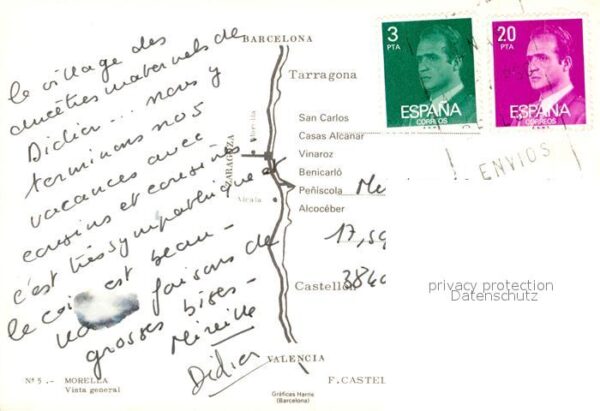 le village des
ancêtres maternels de
Didier... nous y
terminons nos
vacances avec
cousins et cousines
c'est très sympathique et
le coin est beau -
faisons de
grosses bises -
Mireille
Didier
BARCELONA
Tarragona
San Carlos
Casas Alcanar
Vinaroz
Benicarló
Peñíscola
Alcocéber
Castellón
VALENCIA
ZARAGOZA
Morella
Alcala
3
PTA
ESPAÑA
CORREOS
20
PTA
ESPAÑA
CORREOS
ENVIOS
17,
privacy protection
Datenschutz
Nº 5.- MORELLA
Vista general
F. CASTEL
Gráficas Harris
(Barcelona)